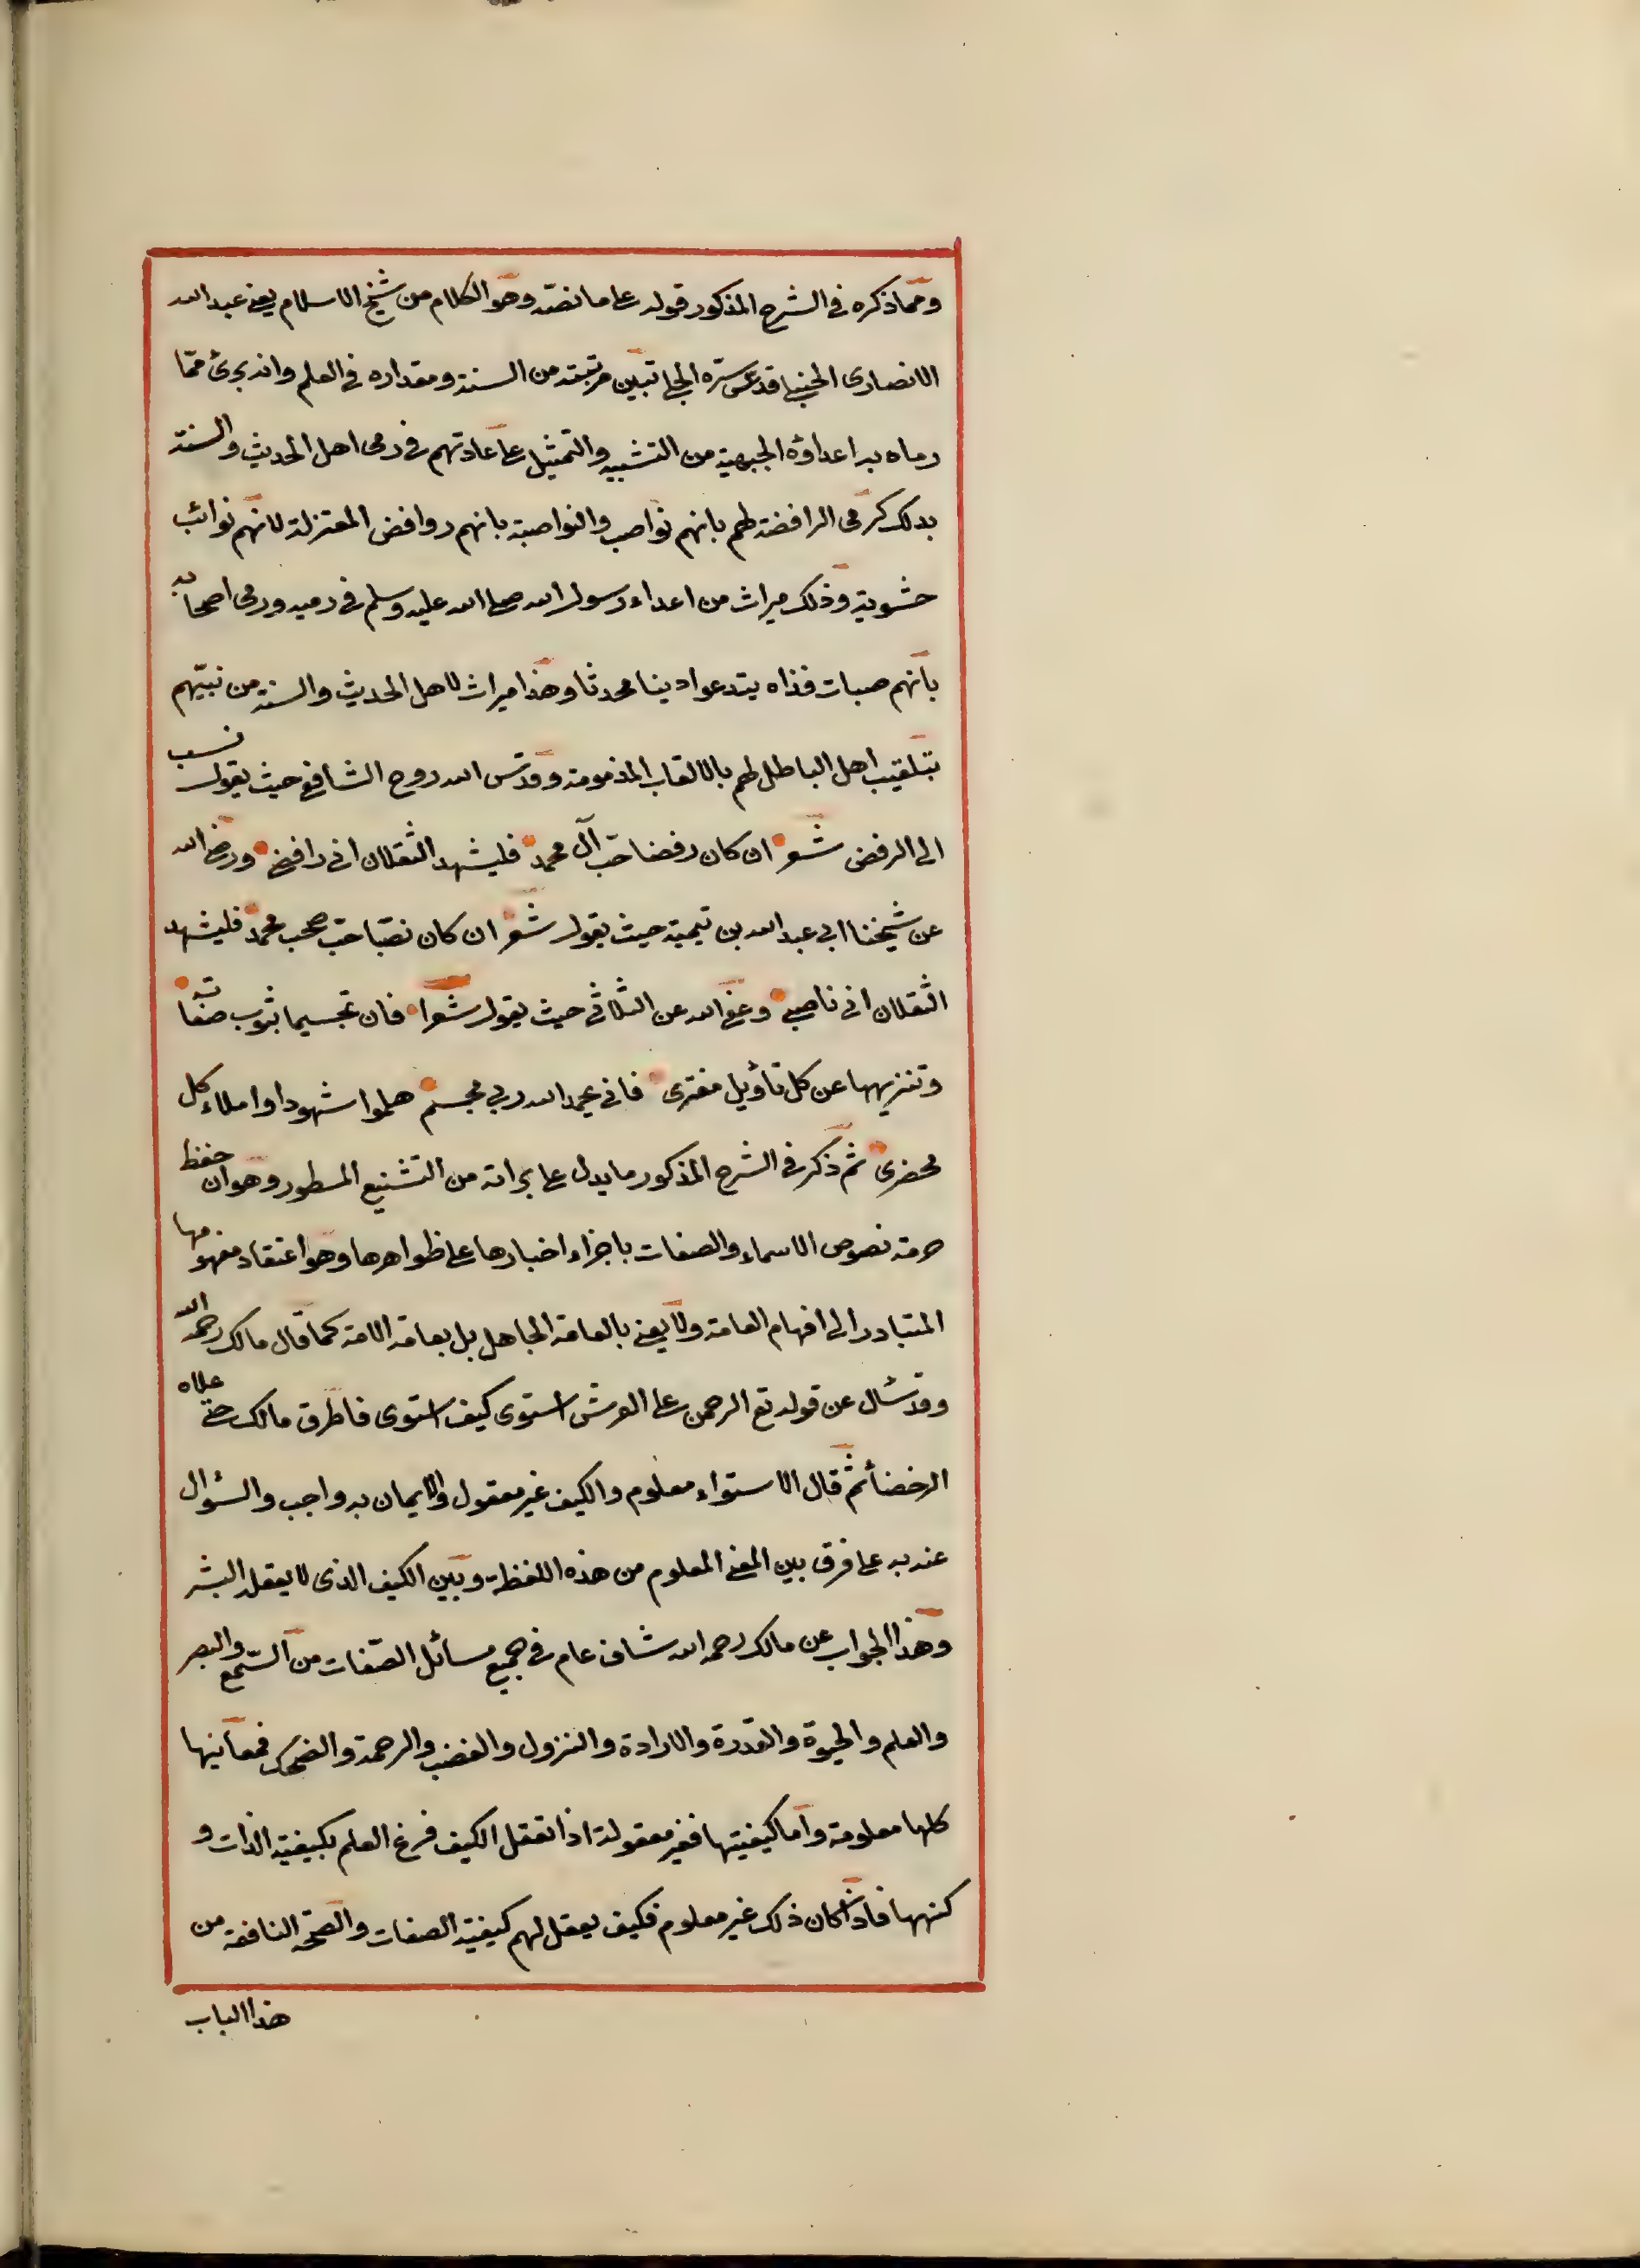 ومما ذكره في الشرح المذكور قوله على ما نصه وهو الكلام من شيخ الاسلام يعني عبد الله
الانصاري الحنبلي قدس سره الجلي تبين مرتبته من السنة ومقداره في العلم وانه برئ مما
رماه به اعداؤه الجهمية من التشبيه والتمثيل على عادتهم في رمى اهل الحديث والسنة
بذلك كرمى الرافضة لهم بانهم نواصب والنواصبة بانهم روافض المعتزلة لانهم نوائب
حشوية وذلك ميراث من اعداء رسول الله صلى الله عليه وسلم في رميه ورمى اصحابه
بانهم صبات قد ابتدعوا دينا محدثا وهذا ميراث لاهل الحديث والسنة من نبيهم
بتلقيب اهل الباطل لهم بالالقاب المذمومة وقدس الله روح الشافعي حيث يقول نسب
الى الرفض شعر ان كان رفضا حب آل محمد فليشهد الثقلان اني رافضي ورضي الله
عن شيخنا ابي عبد الله بن تيمية حيث يقول شعر ان كان نصبا حب صحب محمد فليشهد
الثقلان اني ناصبي وعفى الله عن الثلاثي حيث يقول شعرا فان تجسيما ثبوت صفاته
وتنزيهها عن كل تأويل مفترى فاني بحمد الله ربي مجسم هلموا شهودا واملاء كل
محضري ثم ذكر في الشرح المذكور ما يدل على براته من التشنيع المسطور وهو ان حفظ
حرمة نصوص الاسماء والصفات باجراء اخبارها على ظواهرها وهو اعتقاد مفهومها
المتبادر الى افهام العامة ولا يعني بالعامة الجاهل بل بعامة الامة كما قال مالك رحمه الله
وقد سئال عن قوله تع الرحمن على العرش استوى كيف استوى فاطرق مالك حتى علاه
الرخضأ ثم قال الاستواء معلوم والكيف غير معقول والايمان به واجب والسئوال
عنه به على فرق بين المعنى المعلوم من هذه اللفظة وبين الكيف الذي لا يعقله البشر
وهذا الجواب عن مالك رحمه الله شاف عام في جميع مسائل الصفات من السمع والبصر
والعلم والحيوة والقدرة والارادة والنزول والغضب والرحمة والضحك فمعانيها
كلها معلومة واما كيفيتها فغير معقولة اذا تعقل الكيف فرع العلم بكيفية الذات و
كنهها فاذا كان ذلك غير معلوم فكيف يعقل لهم كيفية الصفات والصحة النافعة من
هذا الباب